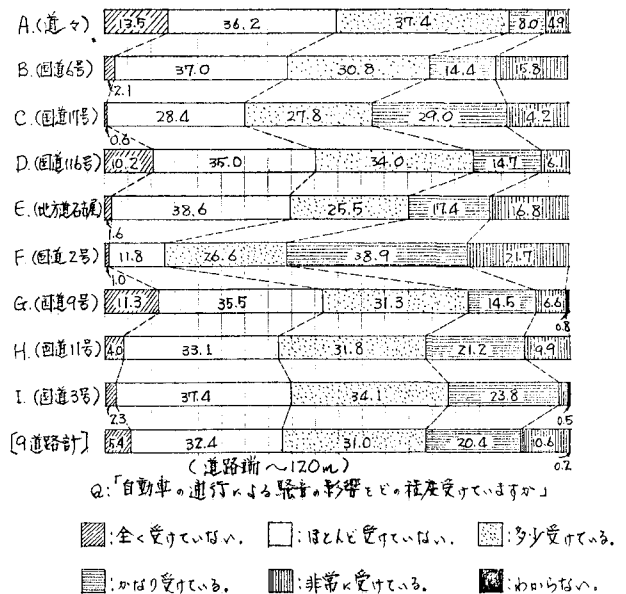 A.(道々) 13.5 36.2 37.4 8.0 4.9
B.(国道6号) 2.1 37.0 30.8 14.4 15.8
C.(国道17号) 0.6 28.4 27.8 29.0 14.2
D.(国道116号) 10.2 35.0 34.0 14.7 6.1
E.(地方道名古屋) 1.6 38.6 25.5 17.4 16.8
F.(国道2号) 1.0 11.8 26.6 38.9 21.7
G.(国道9号) 11.3 35.5 31.3 14.5 6.6 0.8
H.(国道11号) 4.0 33.1 31.8 21.2 9.9
I.(国道3号) 2.3 37.4 34.1 23.8 0.5
[9道路計] 5.4 32.4 31.0 20.4 10.6 0.2
(道路端〜120m)
Q:「自動車の通行による騒音の影響をどの程度受けていますか」
:全く受けていない. :ほとんど受けていない. :多少受けている.
:かなり受けている. :非常に受けている. :わからない.